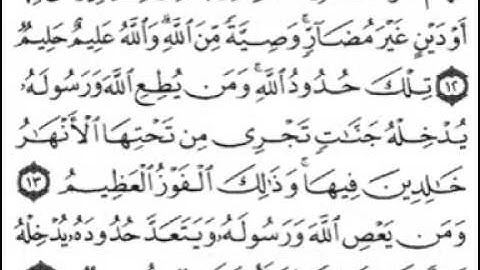 أَوْ دَيْنٍ غَيْرَ مُضَآرٍّۚ وَصِيَّةً مِّنَ ٱللَّهِۗ وَٱللَّهُ عَلِيمٌ حَلِيمٌ
١٢ تِلْكَ حُدُودُ ٱللَّهِۚ وَمَن يُطِعِ ٱللَّهَ وَرَسُولَهُۥ
يُدْخِلْهُ جَنَّـٰتٍ تَجْرِى مِن تَحْتِهَا ٱلْأَنْهَـٰرُ
خَـٰلِدِينَ فِيهَاۚ وَذَٰلِكَ ٱلْفَوْزُ ٱلْعَظِيمُ ١٣
وَمَن يَعْصِ ٱللَّهَ وَرَسُولَهُۥ وَيَتَعَدَّ حُدُودَهُۥ يُدْخِلْهُ